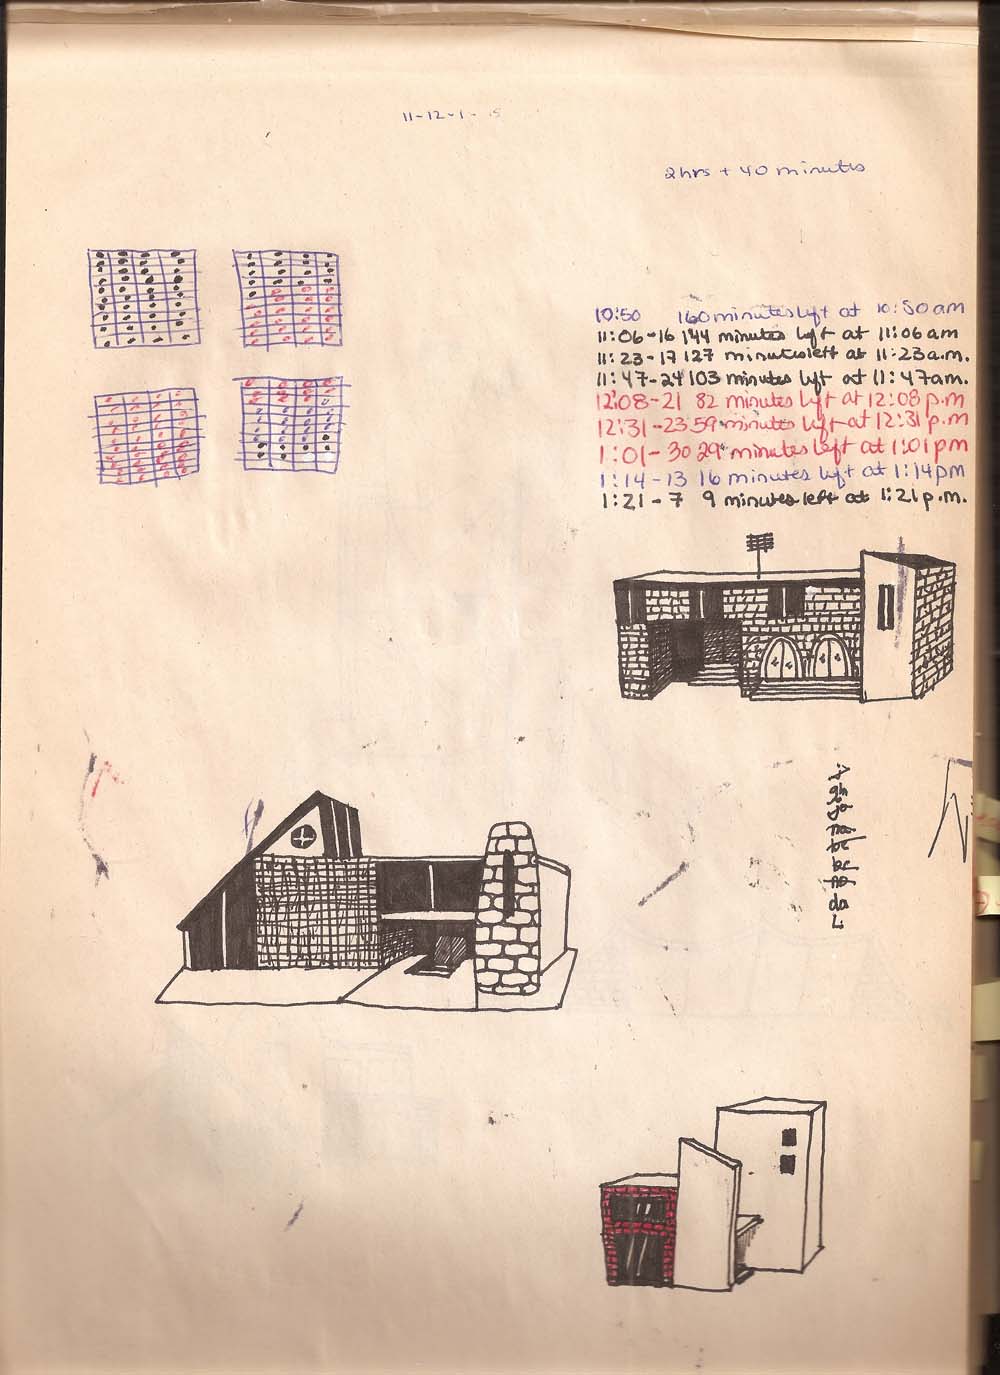 11-12-1-
2hrs + 40 minutes
10:50 160 minutes left at 10:50am
11:06-16 144 minutes left at 11:06am
11:23-17 127 minutes left at 11:23a.m.
11:47-24 103 minutes left at 11:47am.
12:08-21 82 minutes left at 12:08p.m
12:31-23 59 minutes left at 12:31p.m
1:01-30 29 minutes left at 1:01pm
1:14-13 16 minutes left at 1:14pm
1:21-7 9 minutes left at 1:21p.m.